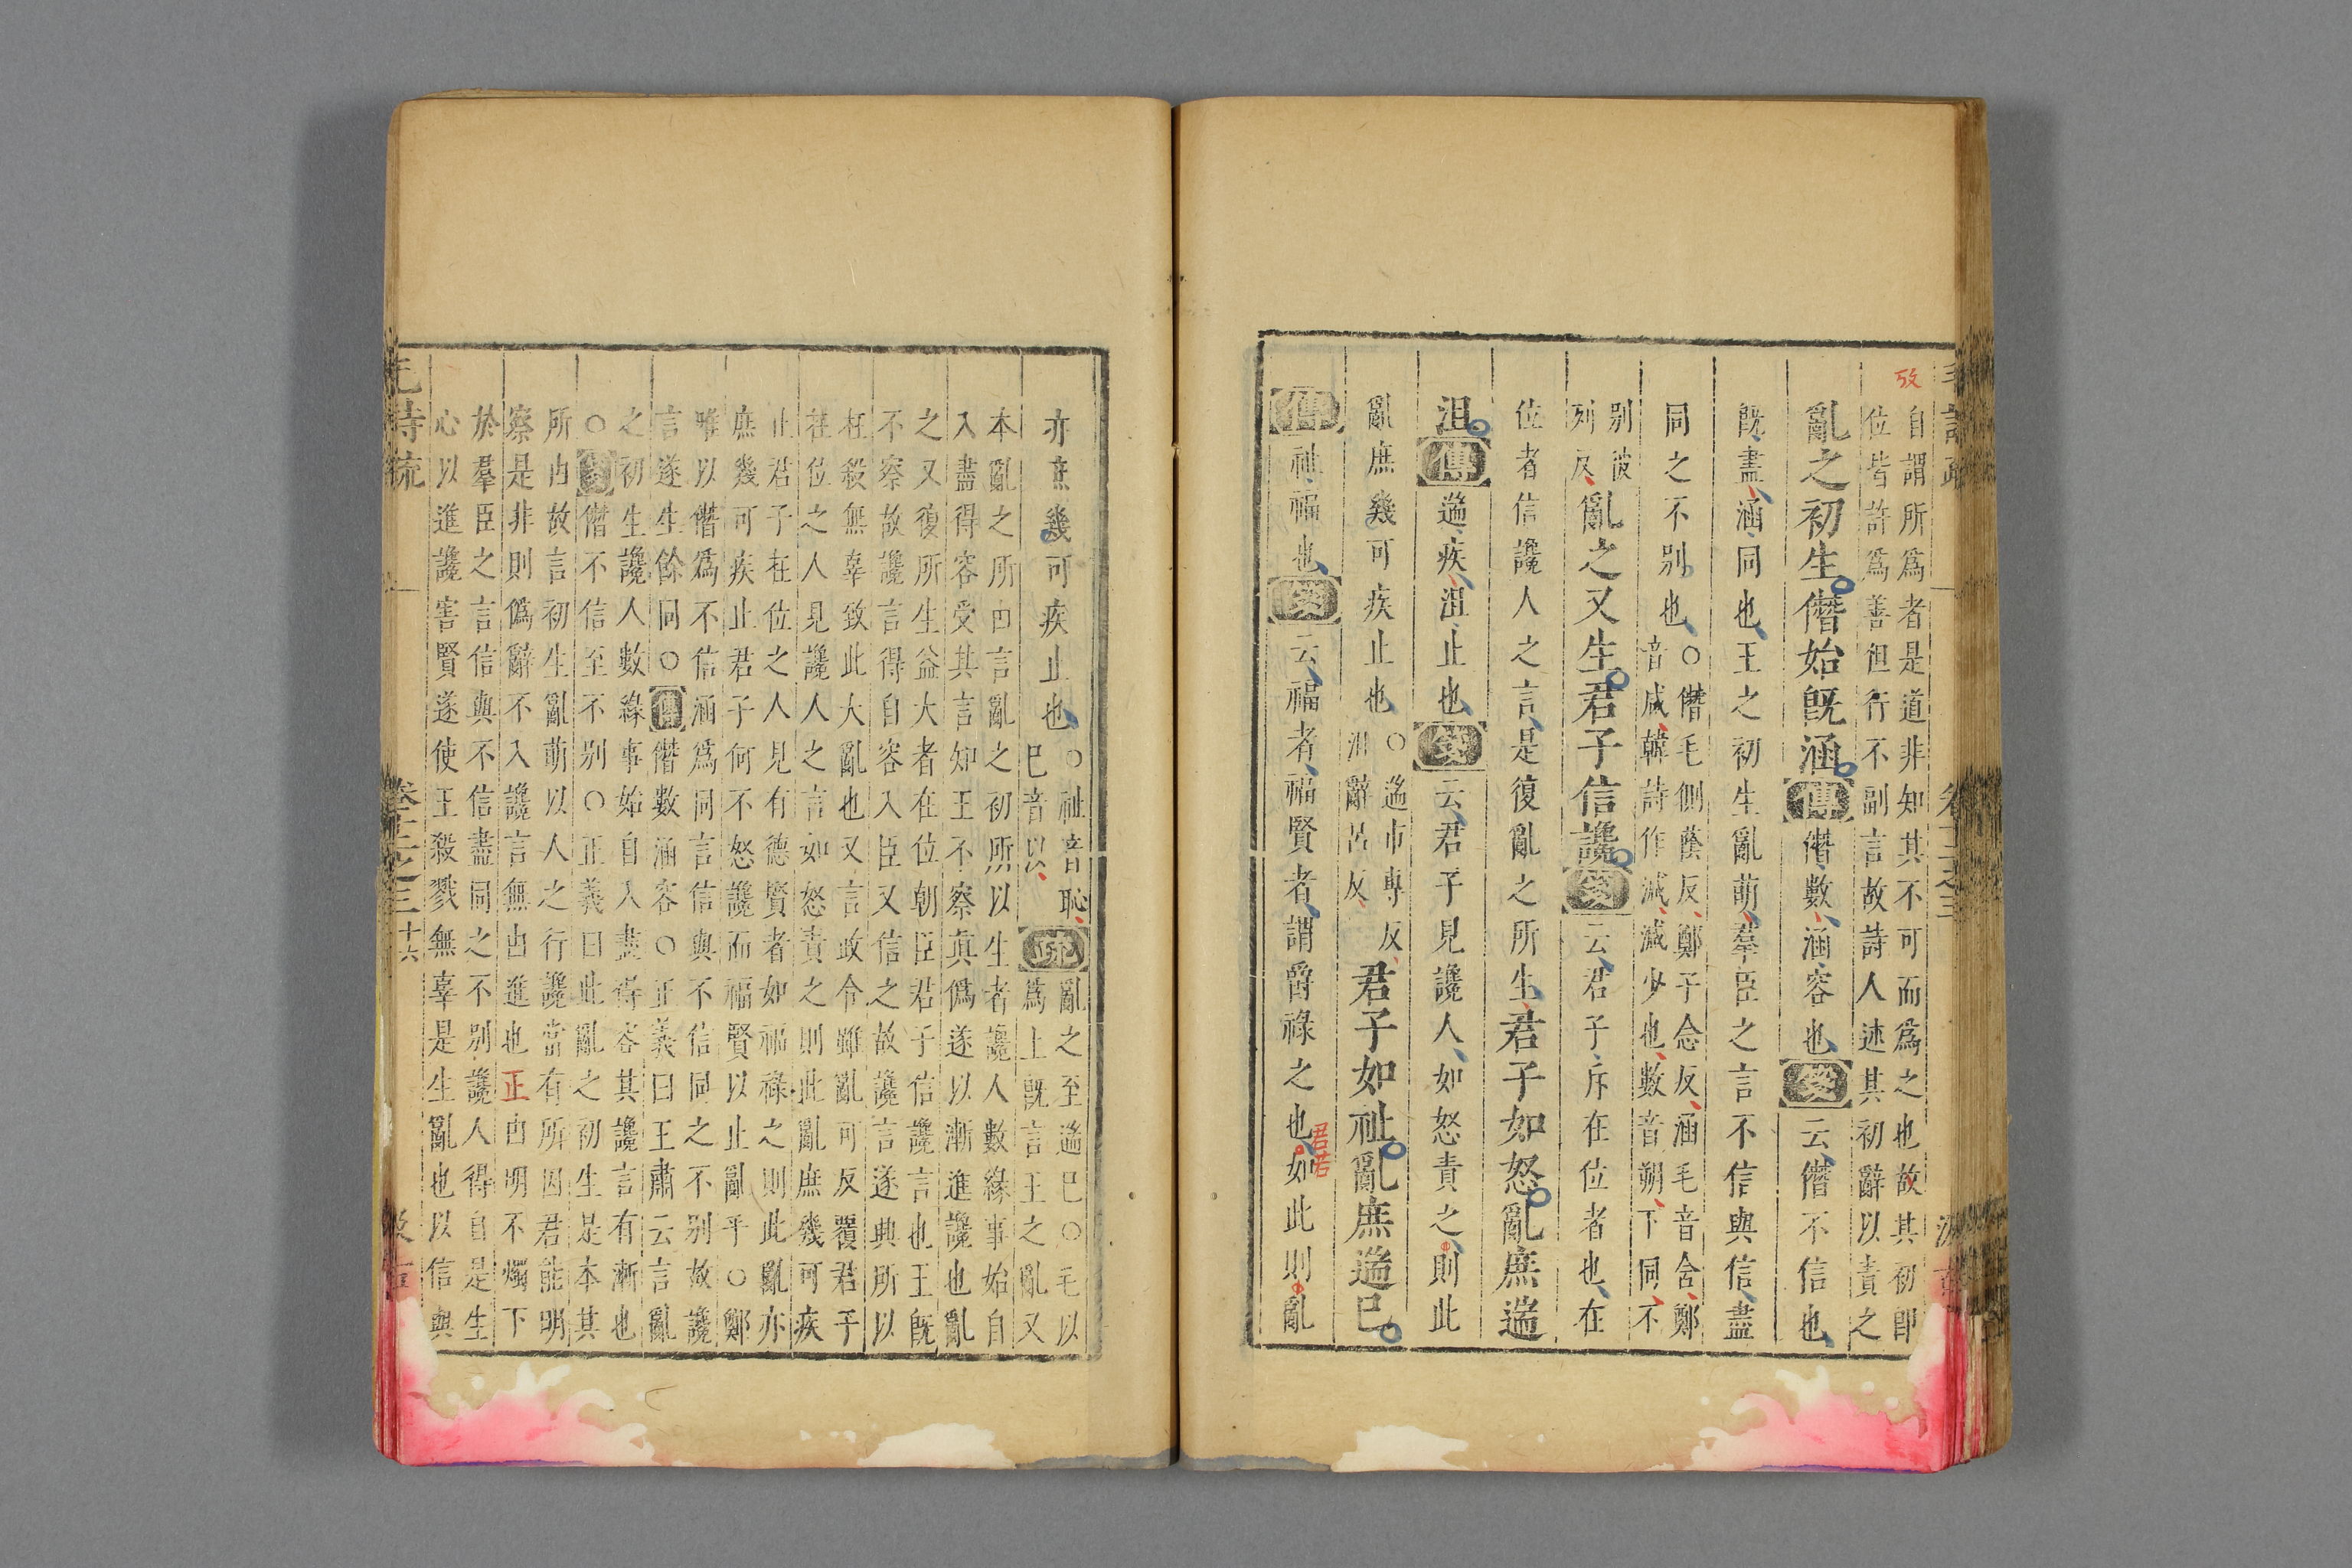 攷
自謂所爲者是道非知其不可而爲之也故其初卽
位皆許爲善但行不副言故詩人述其初辭以責之
亂之初生僭始旣涵傳僭數涵容也箋云僭不信也
旣盡涵同也王之初生亂萌羣臣之言不信與信盡
同之不别也○僭毛側蔭反鄭子念反涵毛音含鄭
音咸韓詩作減減少也數音朔下同不
别彼
列反亂之又生君子信讒箋云君子斥在位者也在
位者信讒人之言是復亂之所生君子如怒亂庶遄
沮傳遄疾沮止也箋云君子見讒人如怒責之則此
亂庶幾可疾止也○遄市專反
沮辭呂反君子如祉亂庶遄已
君若
傳祉福也箋云福者福賢者謂爵祿之也如此則亂
亦庶幾可疾止也○祉音恥
已音以疏亂之至遄已○毛以
爲上旣言王之亂又
本亂之所由言亂之初所以生者讒人數緣事始自
入盡得容受其言知王不察眞僞遂以漸進讒也亂
之又復所生益大者在位朝臣君子信讒言也王旣
不察故讒言得自容入臣又信之故讒言遂興所以
枉殺無辜致此大亂也又言政令雖亂可反覆君子
在位之人見讒人之言如怒責之則此亂庶幾可疾
止君子在位之人見有德賢者如福祿之則此亂亦
庶幾可疾止君子何不怒讒而福賢以止亂乎○鄭
唯以僭爲不信涵爲同言信與不信同之不别故讒
言遂生餘同○傳僭數涵容○正義曰王肅云言亂
之初生讒人數緣事始自入盡得容其讒言有漸也
○箋僭不信至不别○正義曰此亂之初生是本其
所由故言初生亂萌以人之行讒當有所因君能明
察是非則僞辭不入讒言無由進也正由明不燭下
於羣臣之言信與不信盡同之不别讒人得自是生
心以進讒害賢遂使王殺戮無辜是生亂也以信與
毛詩疏 卷十二之三 十六